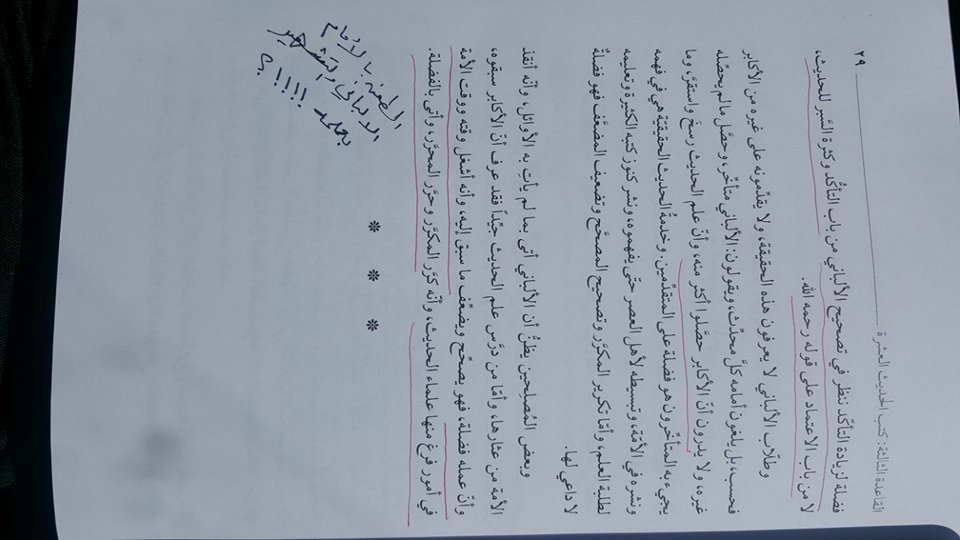 القاعدة الثالثة: كتب الحديث العشرة
٢٩
فضلة لزيادة التأكّد ننظر في تصحيح الألباني من باب التأكّد وكثرة السَّبر للحديث،
لا من باب الاعتماد على قوله رحمه الله.
وطلّاب الألباني لا يعرفون هذه الحقيقة، ولا يقدّمونه على غيره من الأكابر
فحسب، بل يلغون أمامه كلَّ محدِّث، ويقولون: الألباني متأخّر، وحصّل ما لم يحصّله
غيره، ولا يدرون أنّ الأكابر حصّلوا أكثر منه، وأنّ علم الحديث رسخ واستقرّ، وما
يجيء به المتأخّرون هو فضلة على المتقدّمين. وخدمةُ الحديث الحقيقيّة هي في فهمه
ونشره في الأمّة، وتبسيطه لأهل العصر حتّى يفهموه، ونشر كنوز كتبه الكثيرة وتعليمه
لطلبة العلم، وأمّا تكرير المكرَّر وتصحيح المصحَّح وتضعيف المضعَّف فهو فضلةٌ
لا داعي لها.
وبعض المُصلحين يظنُّ أن الألباني أتى بما لم يأتِ به الأوائل، وأنّه أنقذ
الأمة من عثارها، وأمّا من درَّس علم الحديث جيّداً فقد عرف أنّ الأكابر سبقوه،
وأنّ عمله فضلة، فهو يصحّح ويضعّف ما سبق إليه، وأنه أشغل وقته ووقت الأمة
في أمور فرغ منها علماء الحديث، وأنّه كرّر المكرّر وحرّر المحرّر، وأتى بالفضلة.
* * *
الطعن بالإمام
الألباني
!!!!؟